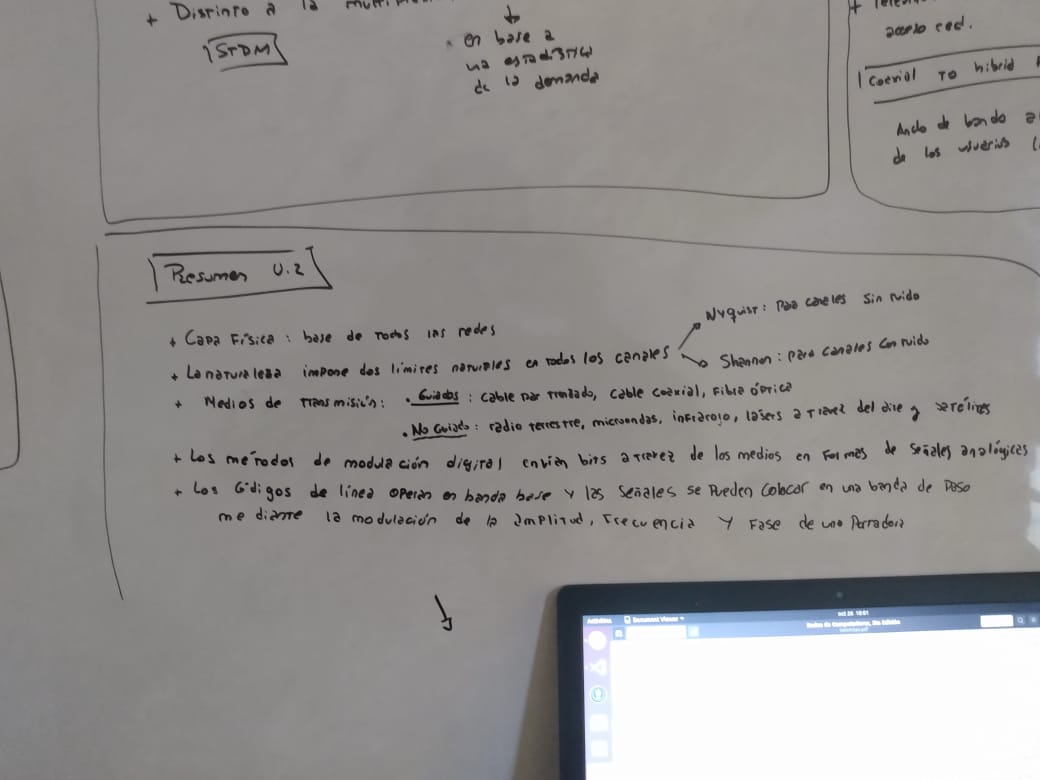 + Distinto a la
STDM
en base a
una estadística
de la demanda
acceso
Coaxial TO hibrid
Ancho de banda
de los usuarios
Resumen U.2
+ Capa Física : base de todos las redes
+ La naturaleza impone dos límites naturales en todos los canales
Nyquist : Para canales sin ruido
Shannon : para canales con ruido
+ Medios de transmisión : • Guiados : cable par trenzado, cable coaxial, Fibra óptica
• No Guiado : radio terrestre, microondas, infrarojo, lásers a travez del aire y satélites
+ Los métodos de modulación digital envían bits a travez de los medios en formas de señales analógicas
+ Los Códigos de línea operan en banda base y las señales se pueden colocar en una banda de paso
mediante la modulación de la amplitud, frecuencia y fase de una portadora
Activities Document Viewer oct 26 10:01
Redes de Computadoras, 5ta Edición